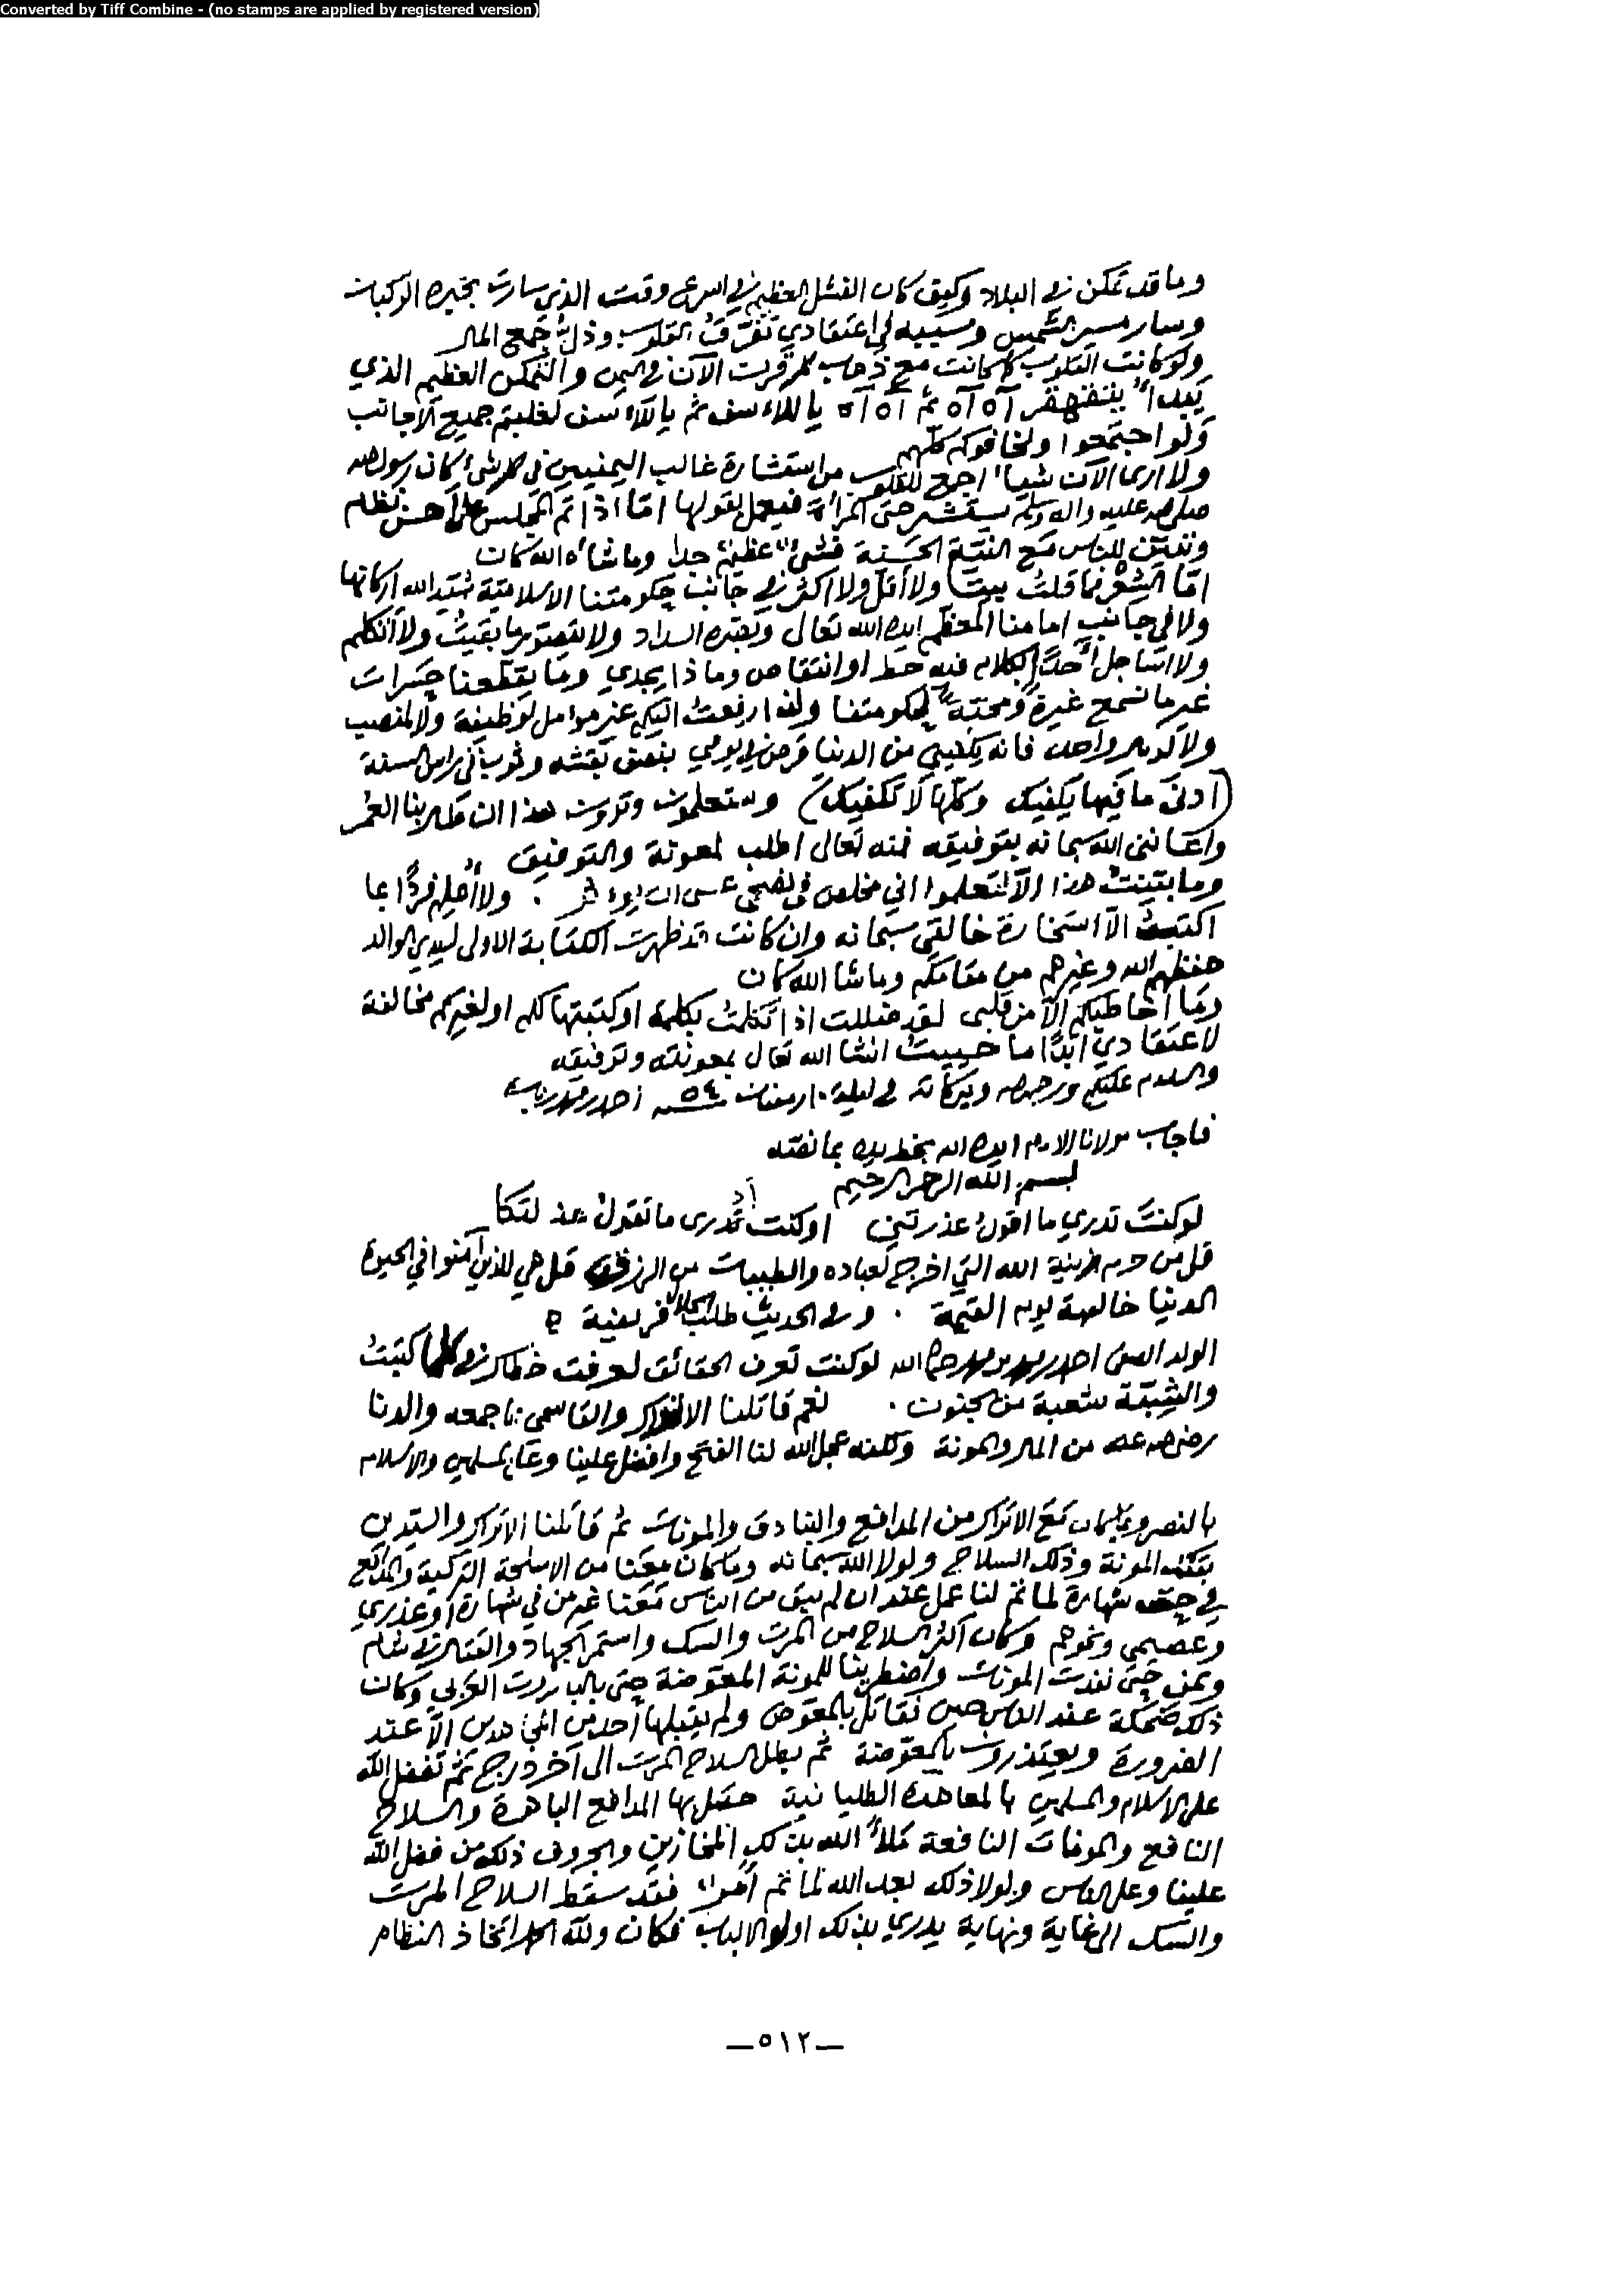 Converted by Tiff Combine - (no stamps are applied by registered version)
وما قد تمكن في البلاد وكيف كان الفشل العظيم في اسرع وقت الذي سارت بخبره الركبان
وسار مسير الشمس وسببه في اعتقادي تفرق القلوب وذلك جمع المال
ولو كانت القلوب كما كانت مع ذهاب كل قرت الآن في اليمن والتمكن العظيم الذي
يتقهقر آه آه ثم آه آه يا للأسف ثم يا للأسف لغلبتم جميع الأجانب
ولو اجتمعوا ولخافوكم كلهم
ولا ارى الآن شيئاً اجمع للقلوب من استشارة غالب اليمنيين في كل شيء كان رسول الله
صلى الله عليه واله وسلم يستشير حتى المرأة فيعمل بقولها امّا اذا تم المجلس على أحسن نظام
وتبيّن للناس مع النيّة الحسنة فشيءٌ عظيمٌ جداً وما شاء الله كان
امّا الشعر فما قلتُ بيتاً ولا أقل ولا اكثر في جانب حكومتنا الاسلاميّة شيّد الله اركانها
ولا في جانب امامنا المعظّم ايده الله تعالى ولا يتصوّر ما بقيتُ ولا أتكلم
ولا اساجل أحداً بكلام فيه حط او انتقاص وماذا يجدي وما يقطعنا حسرات
غير ما نسمع غيرةً ومحبّةً لحكومتنا ولهذا رفعتُ اليكم غير مؤامل لوظيفة ولا لمنصب
ولا لدرهم واحد فانه يكفيني من الدنيا قرص في يومي بنصف بقشه وثوب في راس السنة
(أدنى ما فيها يكفيك وكلّها لا تكفيك) وستعلمون وترون هذا ان طال بنا العمر
واعانني الله سبحانه بتوفيقه فمنه تعالى اطلب المعونة والتوفيق
وما بيّنتُ هذا الّا لتعلموا اني مخلص في نصحي عسى ان يؤثر . ولا أعلم فرداً بما
اكتبتُ الّا استخارة خالقي سبحانه وان كانت قد ظهرت الكتابة الاولى لسيدي الوالد
حفظهم الله وغيرهم من مقامكم وما شا الله كان
وما أخاطبكم الّا من قلبي لقد ضللت اذا تكلمتُ بكلمة او كتبتها لكم او لغيركم مخالفة
لاعتقادي أبداً ما حييتُ انشا الله تعالى بمعونته وتوفيقه
والسلام عليكم ورحمة الله وبركاته في ليلة ١٠ رمضان سنة ٥٤ احمد محمد
فاجاب مولانا الامام ايده الله بخط يده بما لفظه
بسم الله الرحمن الرحيم
لو كنتَ تدري ما اقولُ عذرتني او كنت أدرى ما تقولُ عذلتكا
قل من حرم زينة الله التي اخرج لعباده والطيبات من الرزق قل هي للذين آمنوا في الحيوة
الدنيا خالصة يوم القيمة . وفي الحديث طلب الحلال فريضة
الولد الصفي احمد محمد الله لو كنت تعرف الحقائق لعرفت خطاك في كلما كتبتُ
والشبيبة شعبة من الجنون . نعم قاتلنا الاتراك والقاسمي بما جمعه والدنا
رضي الله عنه من المال والمونة ولكنه عجل الله لنا الفتح وافضل علينا وعلى المسلمين والاسلام
بالنصر وبما كان مع الاتراك من المدافع والبنادق والمونات ثم قاتلنا الاتراك والسيّدين
بتلك المونة وذلك السلاح ولولا الله سبحانه وما كان معنا من الاسلحة التركية والمدافع
في حصن شهارة لما تم لنا عمل عند ان لم يبق من الناس معنا غير من في شهارة او عذري
وعصيمي ونحوهم وكان اكثر السلاح من المرت والسك واستمر الجهاد والقتال في شام
ويمن حتى نفدت المونات واضطرينا للمونة المعوّضة حتى بالبارود العربي وكان
ذلك ضحكة عند الناس حين نقاتل بالمعوّض ولم يقبلها أحد من المجاهدين الّا عند
الضرورة ويعتذرون بالمعوّضة ثم بطل السلاح المرت الى آخر درجة ثم تفضل الله
على الاسلام والمسلمين بالمعاهدة الطليانية حصّل بها المدافع الباهرة والسلاح
النافع والمونات النافعة ملأ الله بذلك المخازين والجروف ذلك من فضل الله
علينا وعلى الناس ولولا ذلك بعد الله لما تم أمرٌ فقد سقط السلاح المرت
والسك الى غاية ونهاية يدري بذلك اولو الالباب فكان ولله الحمد اتخاذ النظام
—٥١٢—